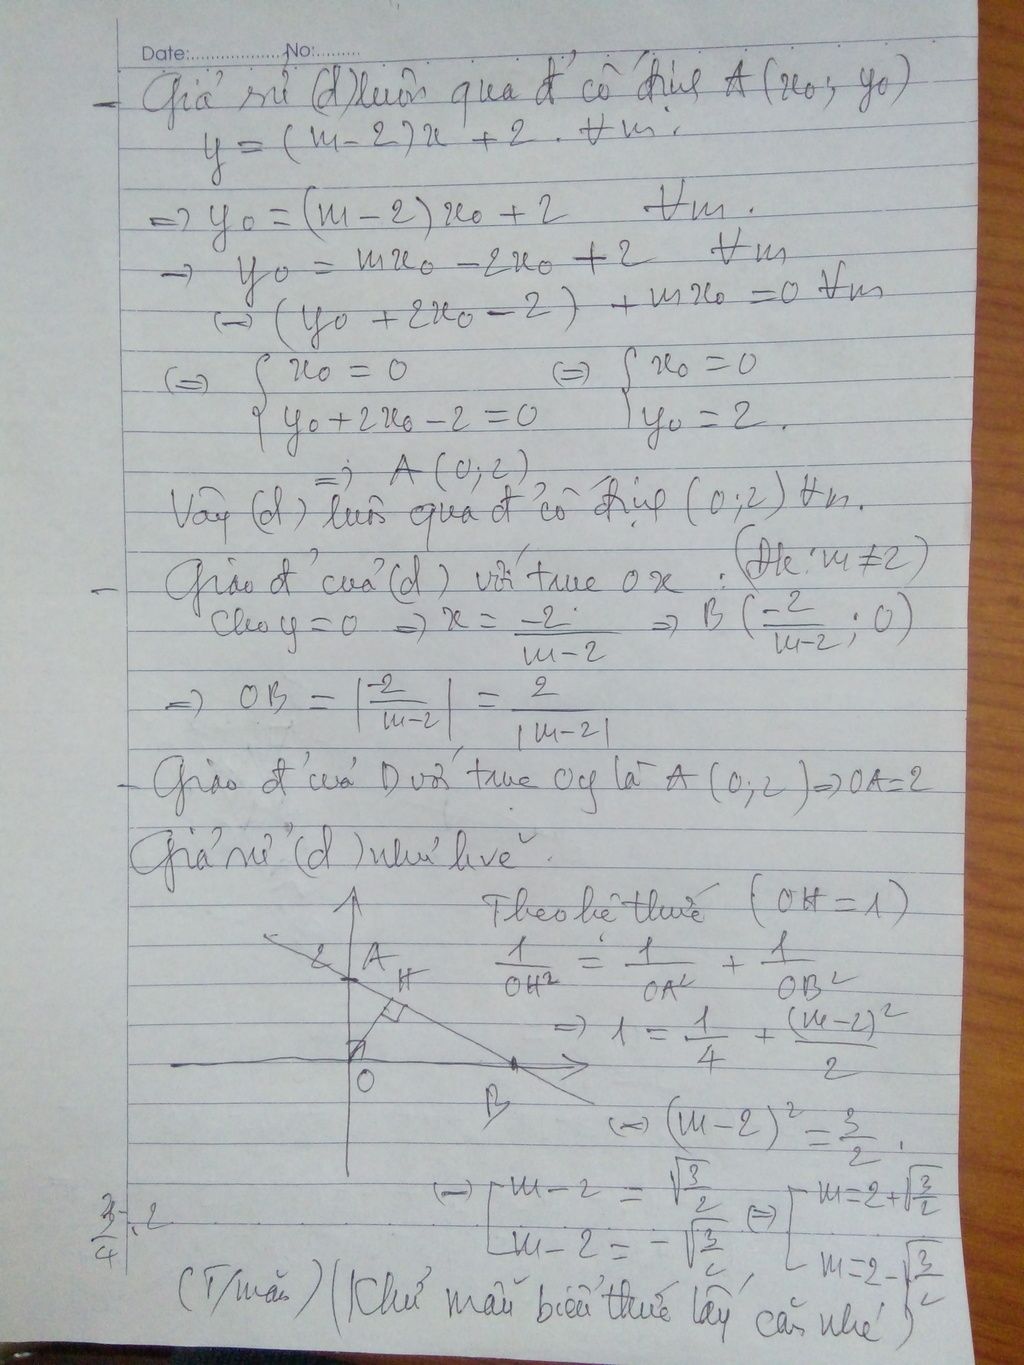 Date:....................No:.........
- Giả sử (d) luôn qua đ' cố định A(x₀; y₀)
y = (m-2)x + 2. ∀m.
=> y₀ = (m-2)x₀ + 2 ∀m.
-> y₀ = mx₀ - 2x₀ + 2 ∀m
(=) (y₀ + 2x₀ - 2) + mx₀ = 0 ∀m
(=) { x₀ = 0 (=) { x₀ = 0
y₀ + 2x₀ - 2 = 0 y₀ = 2.
=> A(0;2)
Vậy (d) luôn qua đ' cố định (0;2) ∀m.
- Giao đ' của (d) với trục Ox : (Đk: m ≠ 2)
Cho y = 0 => x = -2/(m-2) => B(-2/(m-2); 0)
=> OB = |-2/(m-2)| = 2/|m-2|
- Giao đ' của D với trục Oy là A(0;2) => OA = 2
Giả sử (d) như h vẽ.
Theo hệ thức (OH = 1)
2 A H
1/OH² = 1/OA² + 1/OB²
=> 1 = 1/4 + (m-2)²/2
O
B
(=) (m-2)² = 3/2.
(=) [ m-2 = √3/2 (=) [ m = 2+√3/2
m-2 = -√3/2 m = 2-√3/2
3/4 . 2
(T/mãn) (Khử mẫu biểu thức lấy căn nhé)